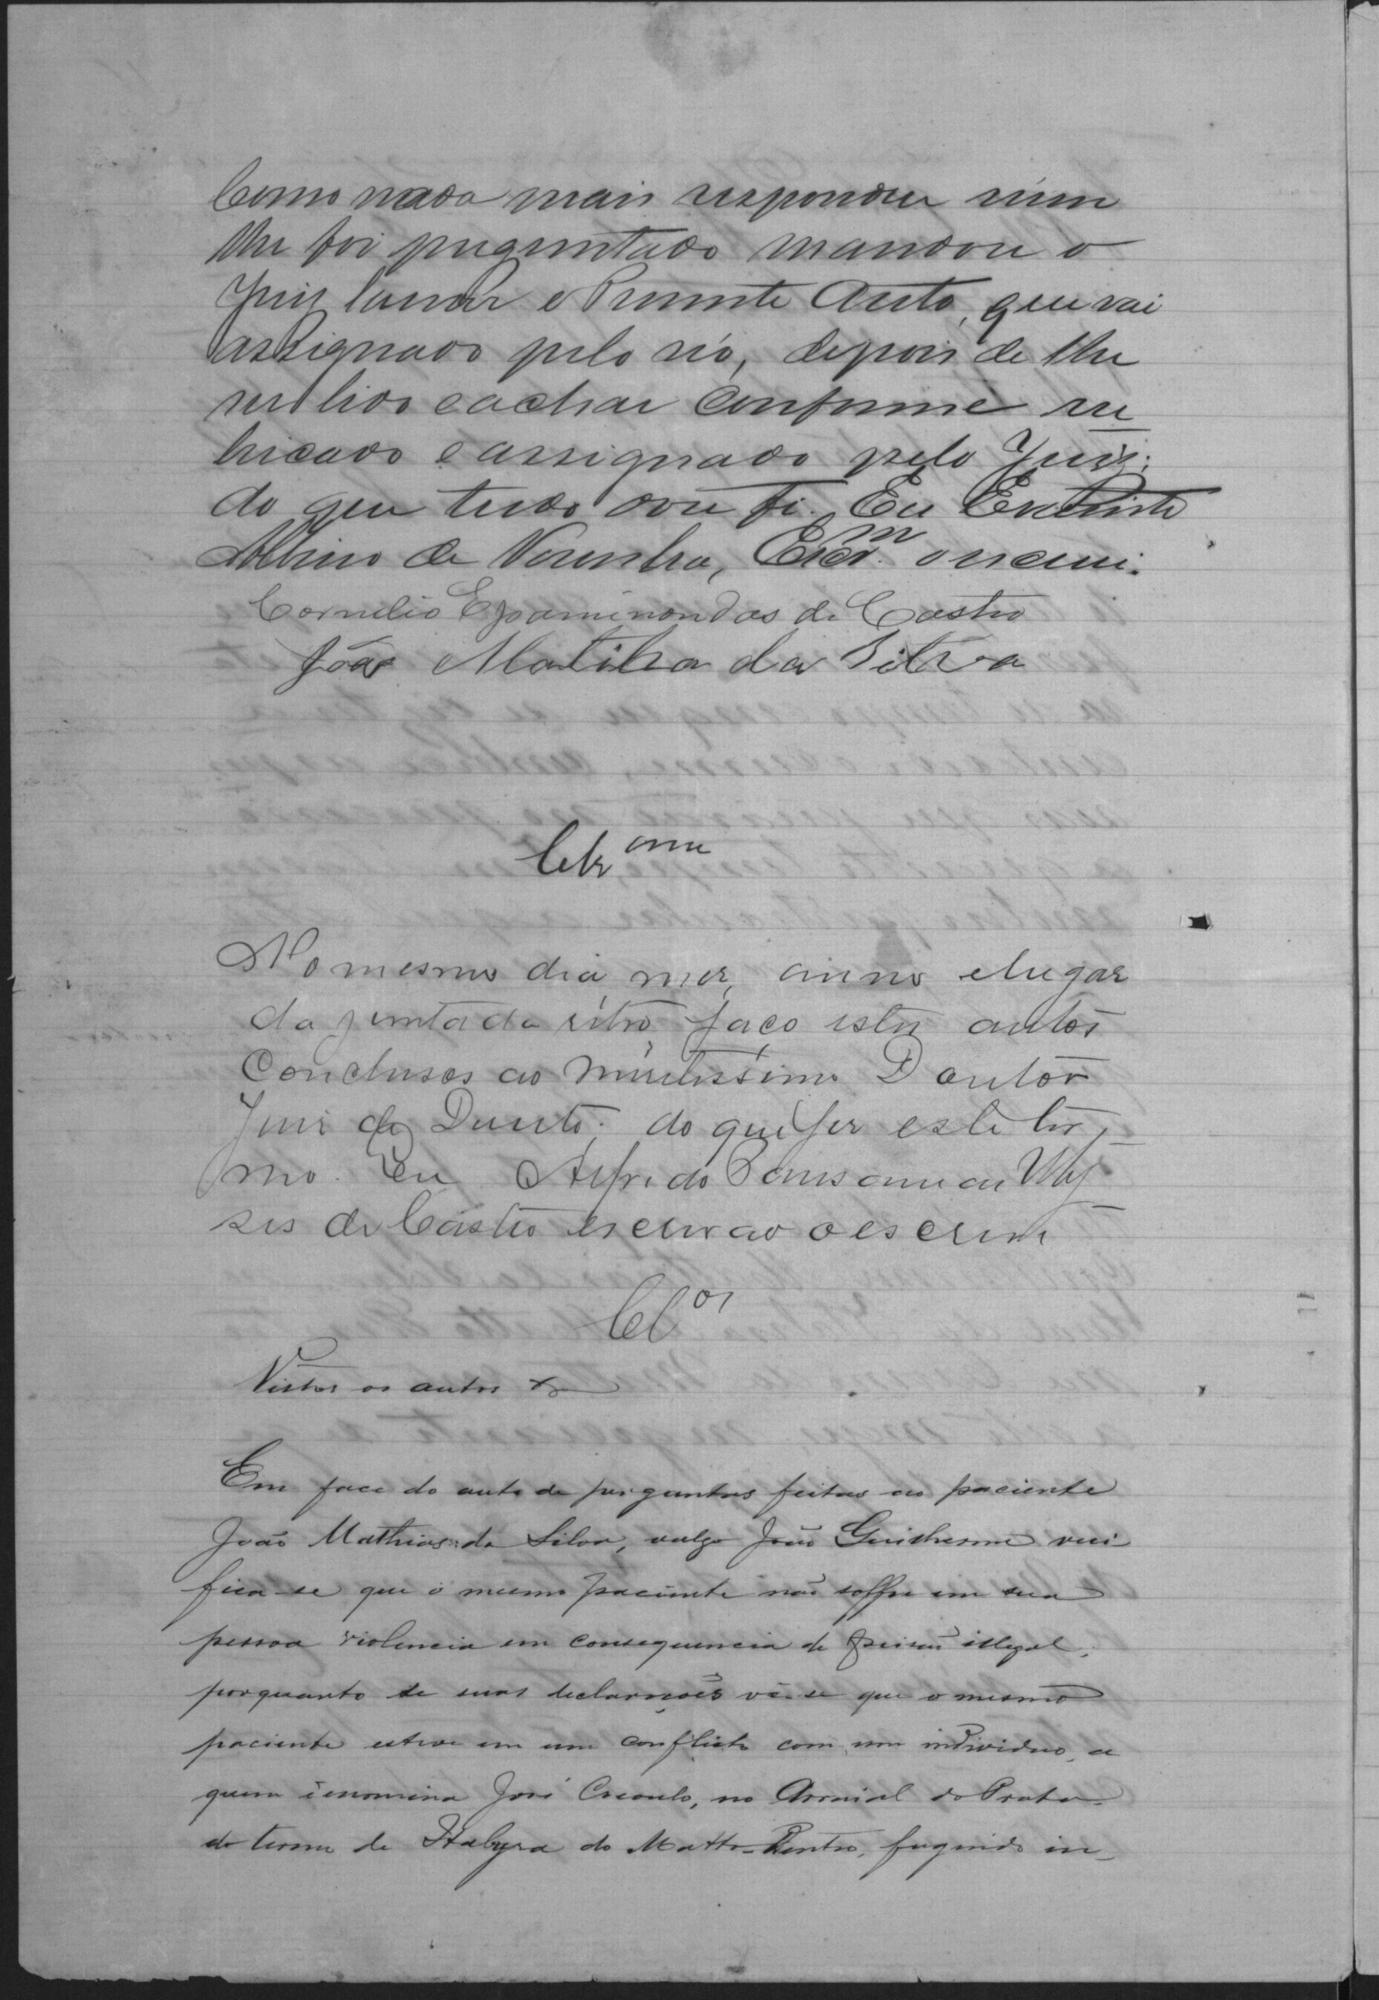 Como nada mais respondeu nem
lhe foi preguntado mandou o
Juiz lavrar o Prezente Auto, que vai
assignado pelo réo, depois de lhe
ser lido e achar conforme ru
bricado e assignado pelo Juiz;
do que tudo dou fé. Eu Evaristo
Albino de Noronha, Escr.m o escrevi.
Cornelio Epaminondas de Castro
João Matiha da Silva
Clz am
No mesmo dia, mez, anno e lugar
da juntada retro, faço estes autos
Conclusos ao Meritissimo Doutor
Juiz de Direito; do que fiz este ter-
mo. Eu Alfredo Pausanias Uly-
ses de Castro escrivão o escrevi
Clos
Vistos os autos &
Em face do auto de perguntas feitas ao paciente
João Mathias da Silva, vulgo João Guilherme veri
fica-se que o mesmo paciente não soffre em sua
pessoa violencia em consequencia de prisão illegal,
porquanto de suas declarações vê-se que o mesmo
paciente esteve em um conflicto com um individuo, a
quem denomina José Creoulo, no Arraial do Prata
do termo de Itabyra do Matto-Dentro, fugindo in-